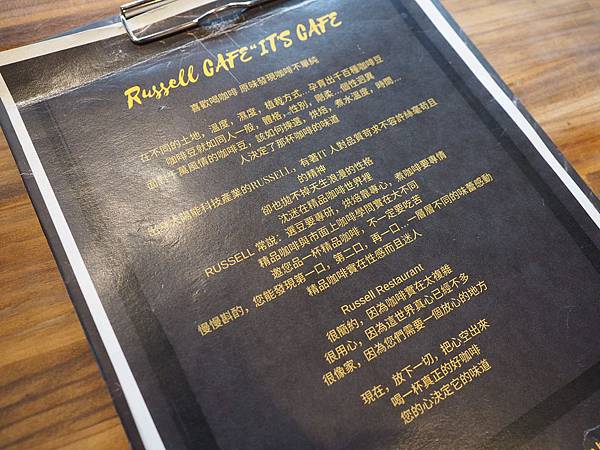 Russell CAFE"IT'S CAFE
喜歡喝咖啡 原味發現咖啡不單純
在不同的土地，溫度，濕度，植栽方式…孕育出千百種咖啡豆
咖啡豆就如同人一般，體格，性別，剛柔…個性迥異
面對了萬風情的咖啡豆，該如何揀選，烘焙，煮水溫度，時間…
人決定了那杯咖啡的味道
太陽能科技產業的RUSSELL，有著IT人對品質苛求不容許絲毫苟且
的精神
卻也拋不掉天生浪漫的性格
沈迷在精品咖啡世界裡
RUSSELL 常說：選豆要專研，烘焙靠專心，煮咖啡要專情
精品咖啡與市面上咖啡學問實在大不同
邀您品一杯精品咖啡，不一定要吃苦
慢慢斟酌，您能發現第一口，第二口，再一口．一層層不同的味蕾感動
精品咖啡實在性感而且迷人
Russell Restaurant
很簡約，因為咖啡實在太複雜
很用心，因為這世界真心已經不多
很像家，因為您們需要一個放心的地方
現在，放下一切，把心空出來
喝一杯真正的好咖啡
您的心決定它的味道